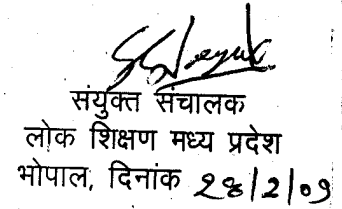 संयुक्त संचालक
लोक शिक्षण मध्य प्रदेश
भोपाल, दिनांक 28/2/09